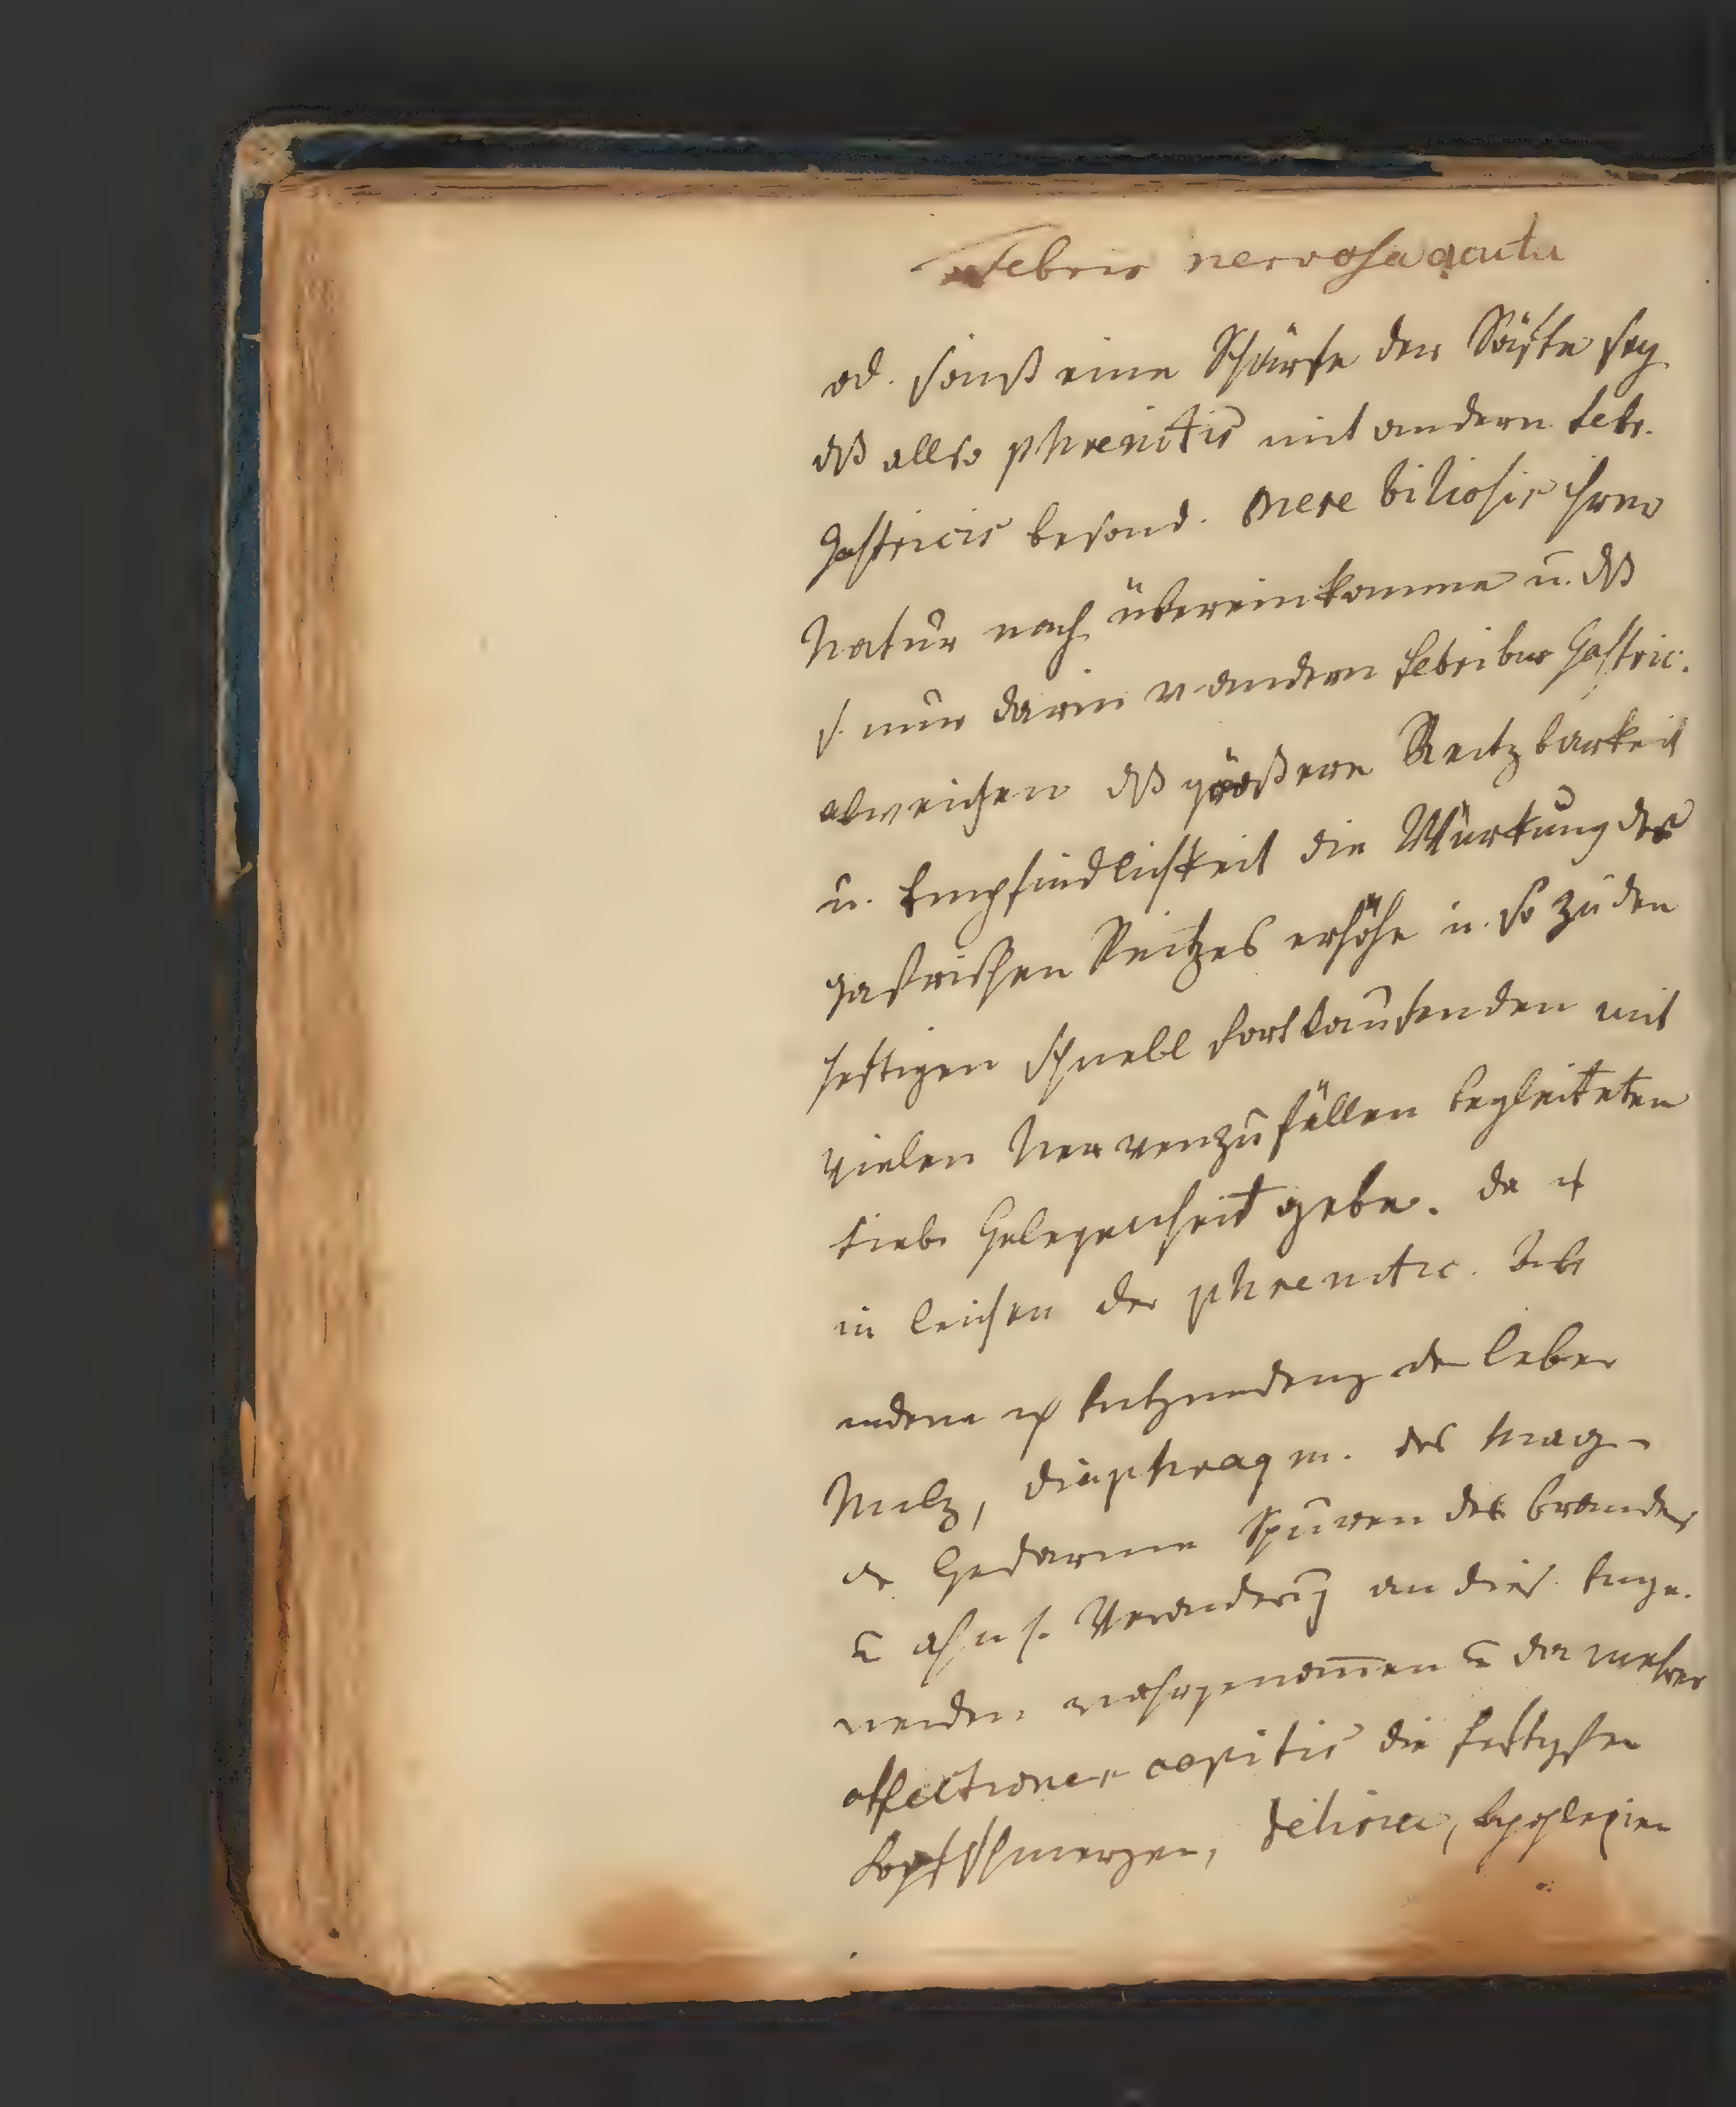 Febris nervosa acuta
od. sonst eine Schärfe der Säfte sey
dß allso phrenitis mit andern febr.
Gastricis besond. mere biliosis ihrer
Natur nach übereinkomme u. dß
s. nur darin v andern febribus Gastric.
abweichen dß größere Reitzbarkeit
u. Empfindlichkeit die Würkung des
gastrischen Reitzes erhöhe u. so zu den
heftigen schnell fortlaufenden mit
vielen Nervenzufällen begleiteten
Fieb. Gelegenheit gebe. da
in Leichen der phrenitic.
andern Entzündung der Leber
Milz, diaphragm. des Mag-
der Gedärme Spuren des Brandes
u ähnl. Veränderung an dies. Einge.
weiden wahrgenommen u der mehrer
affectiones capitis die heftigsten
Kopfschmerzen, deliria, Apoplexien